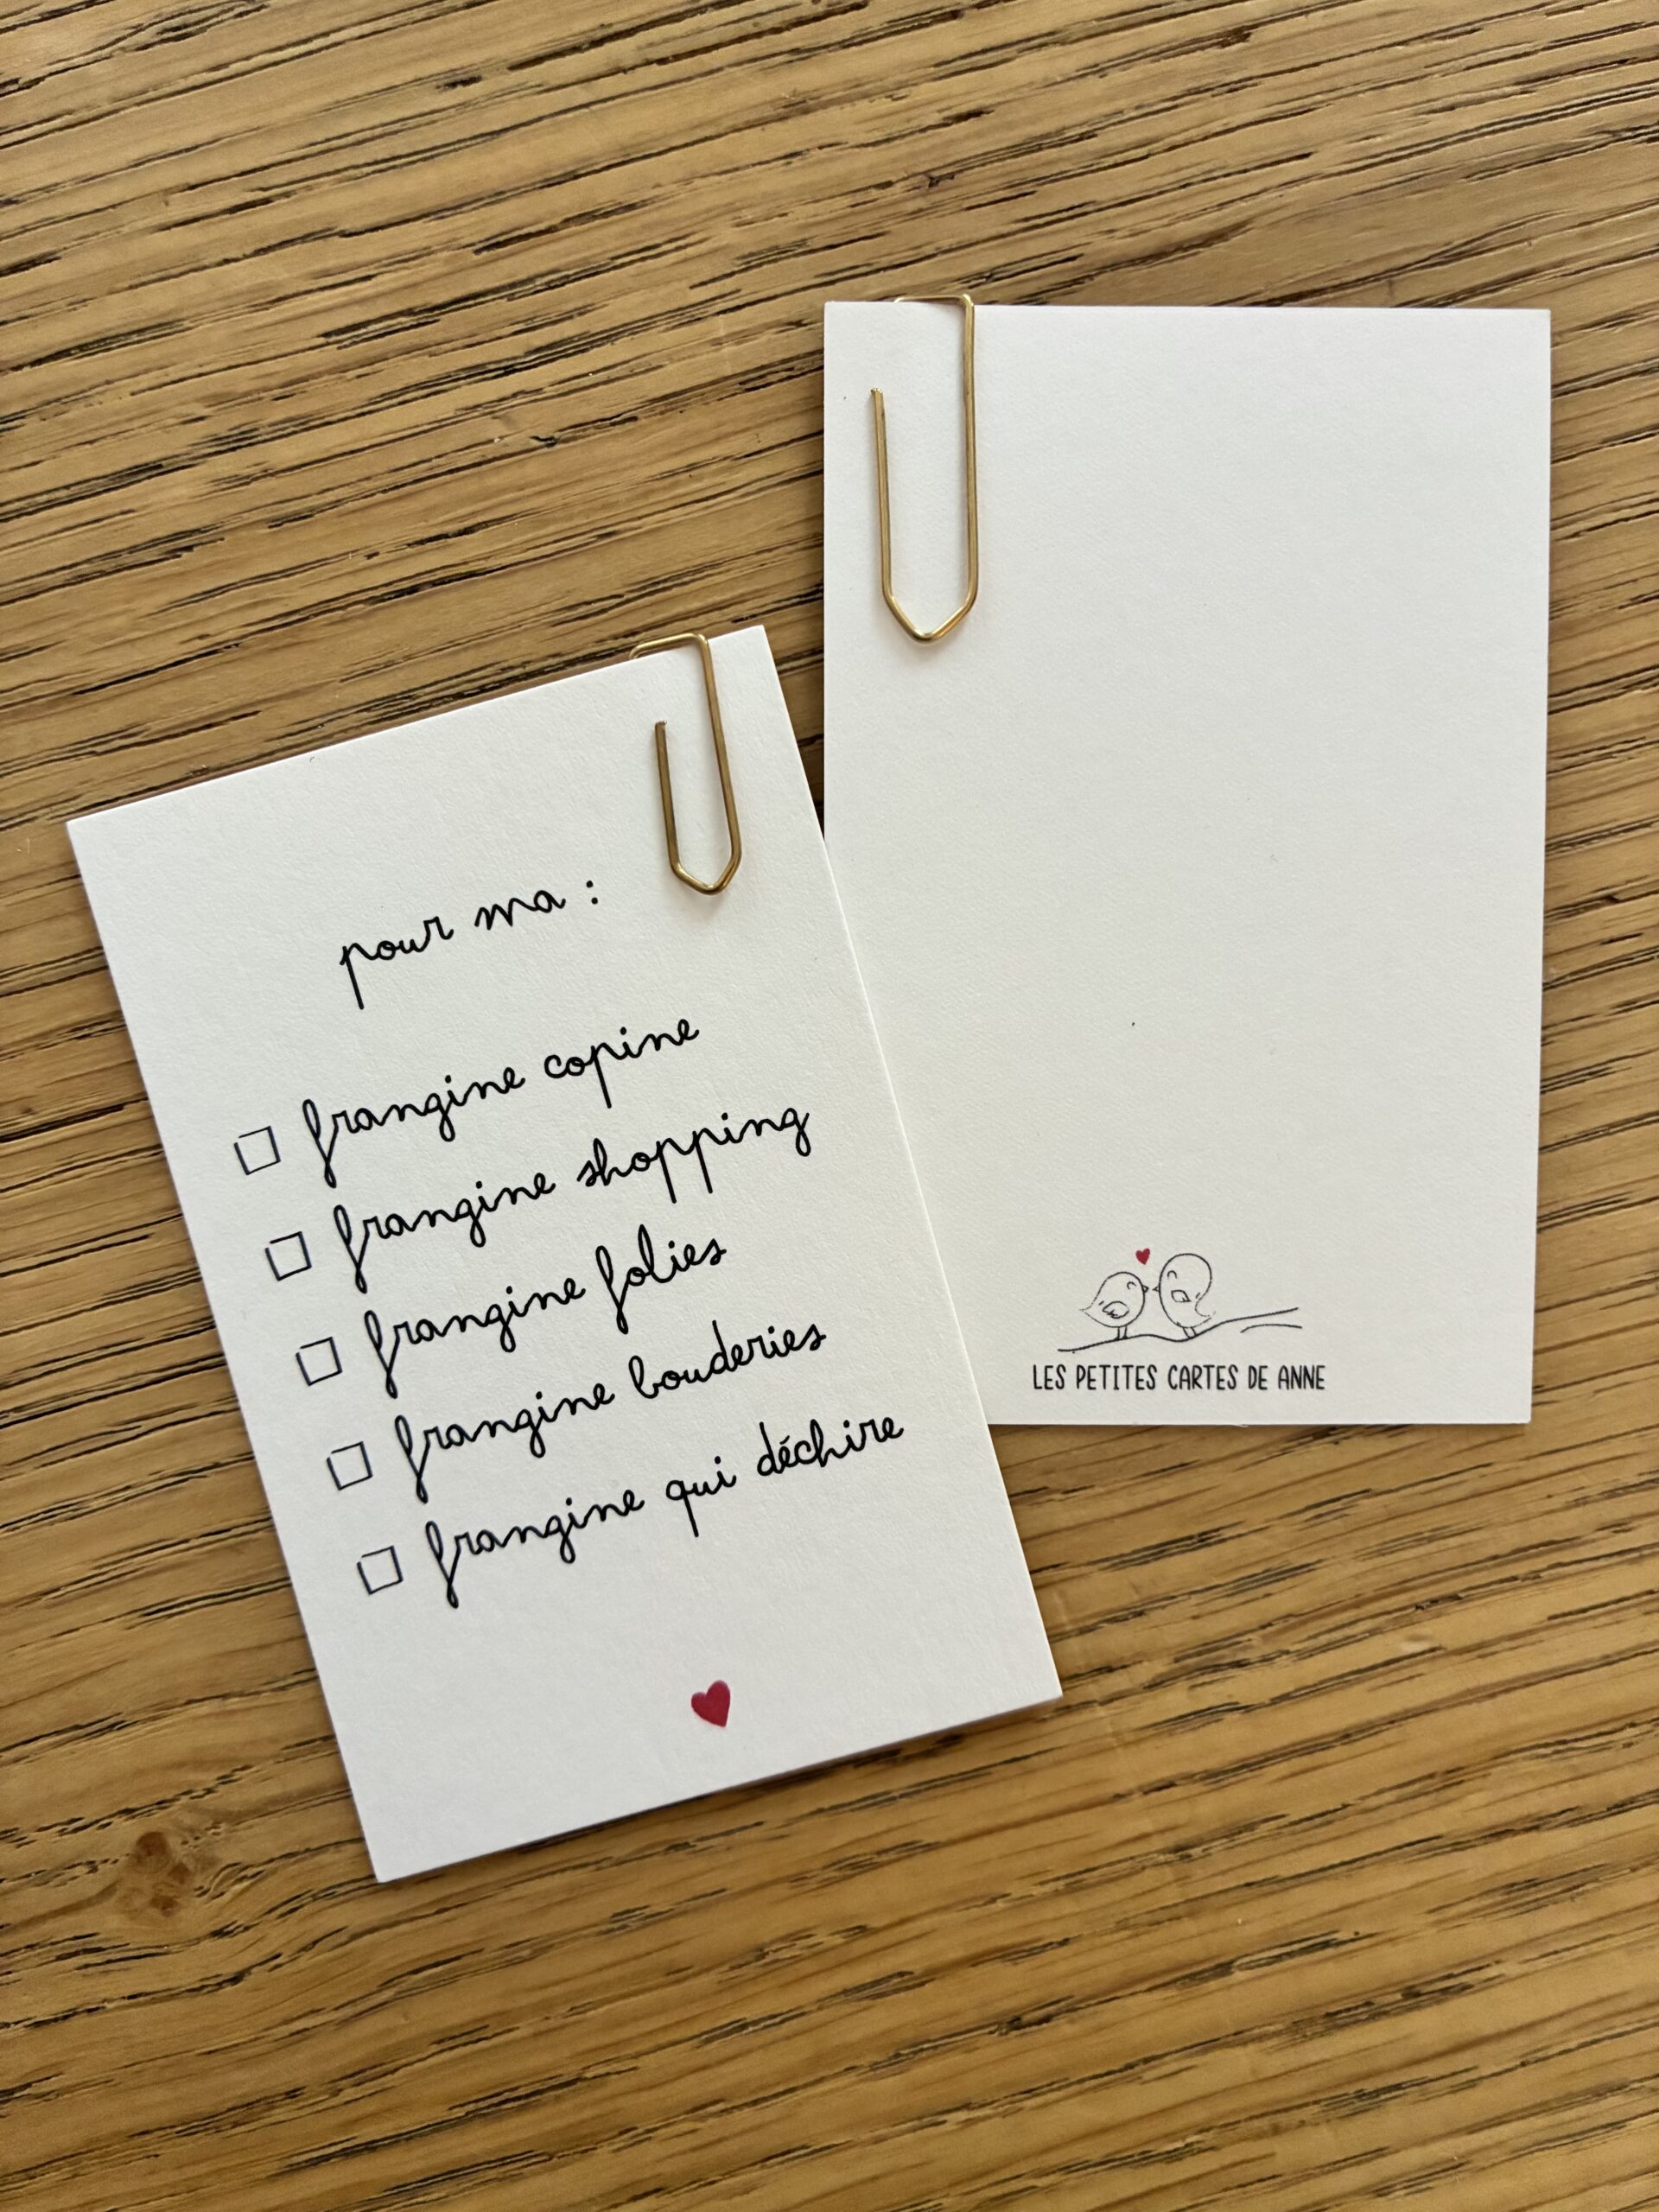 pour ma :
frangine copine
frangine shopping
frangine folies
frangine bouderies
frangine qui déchire
LES PETITES CARTES DE ANNE